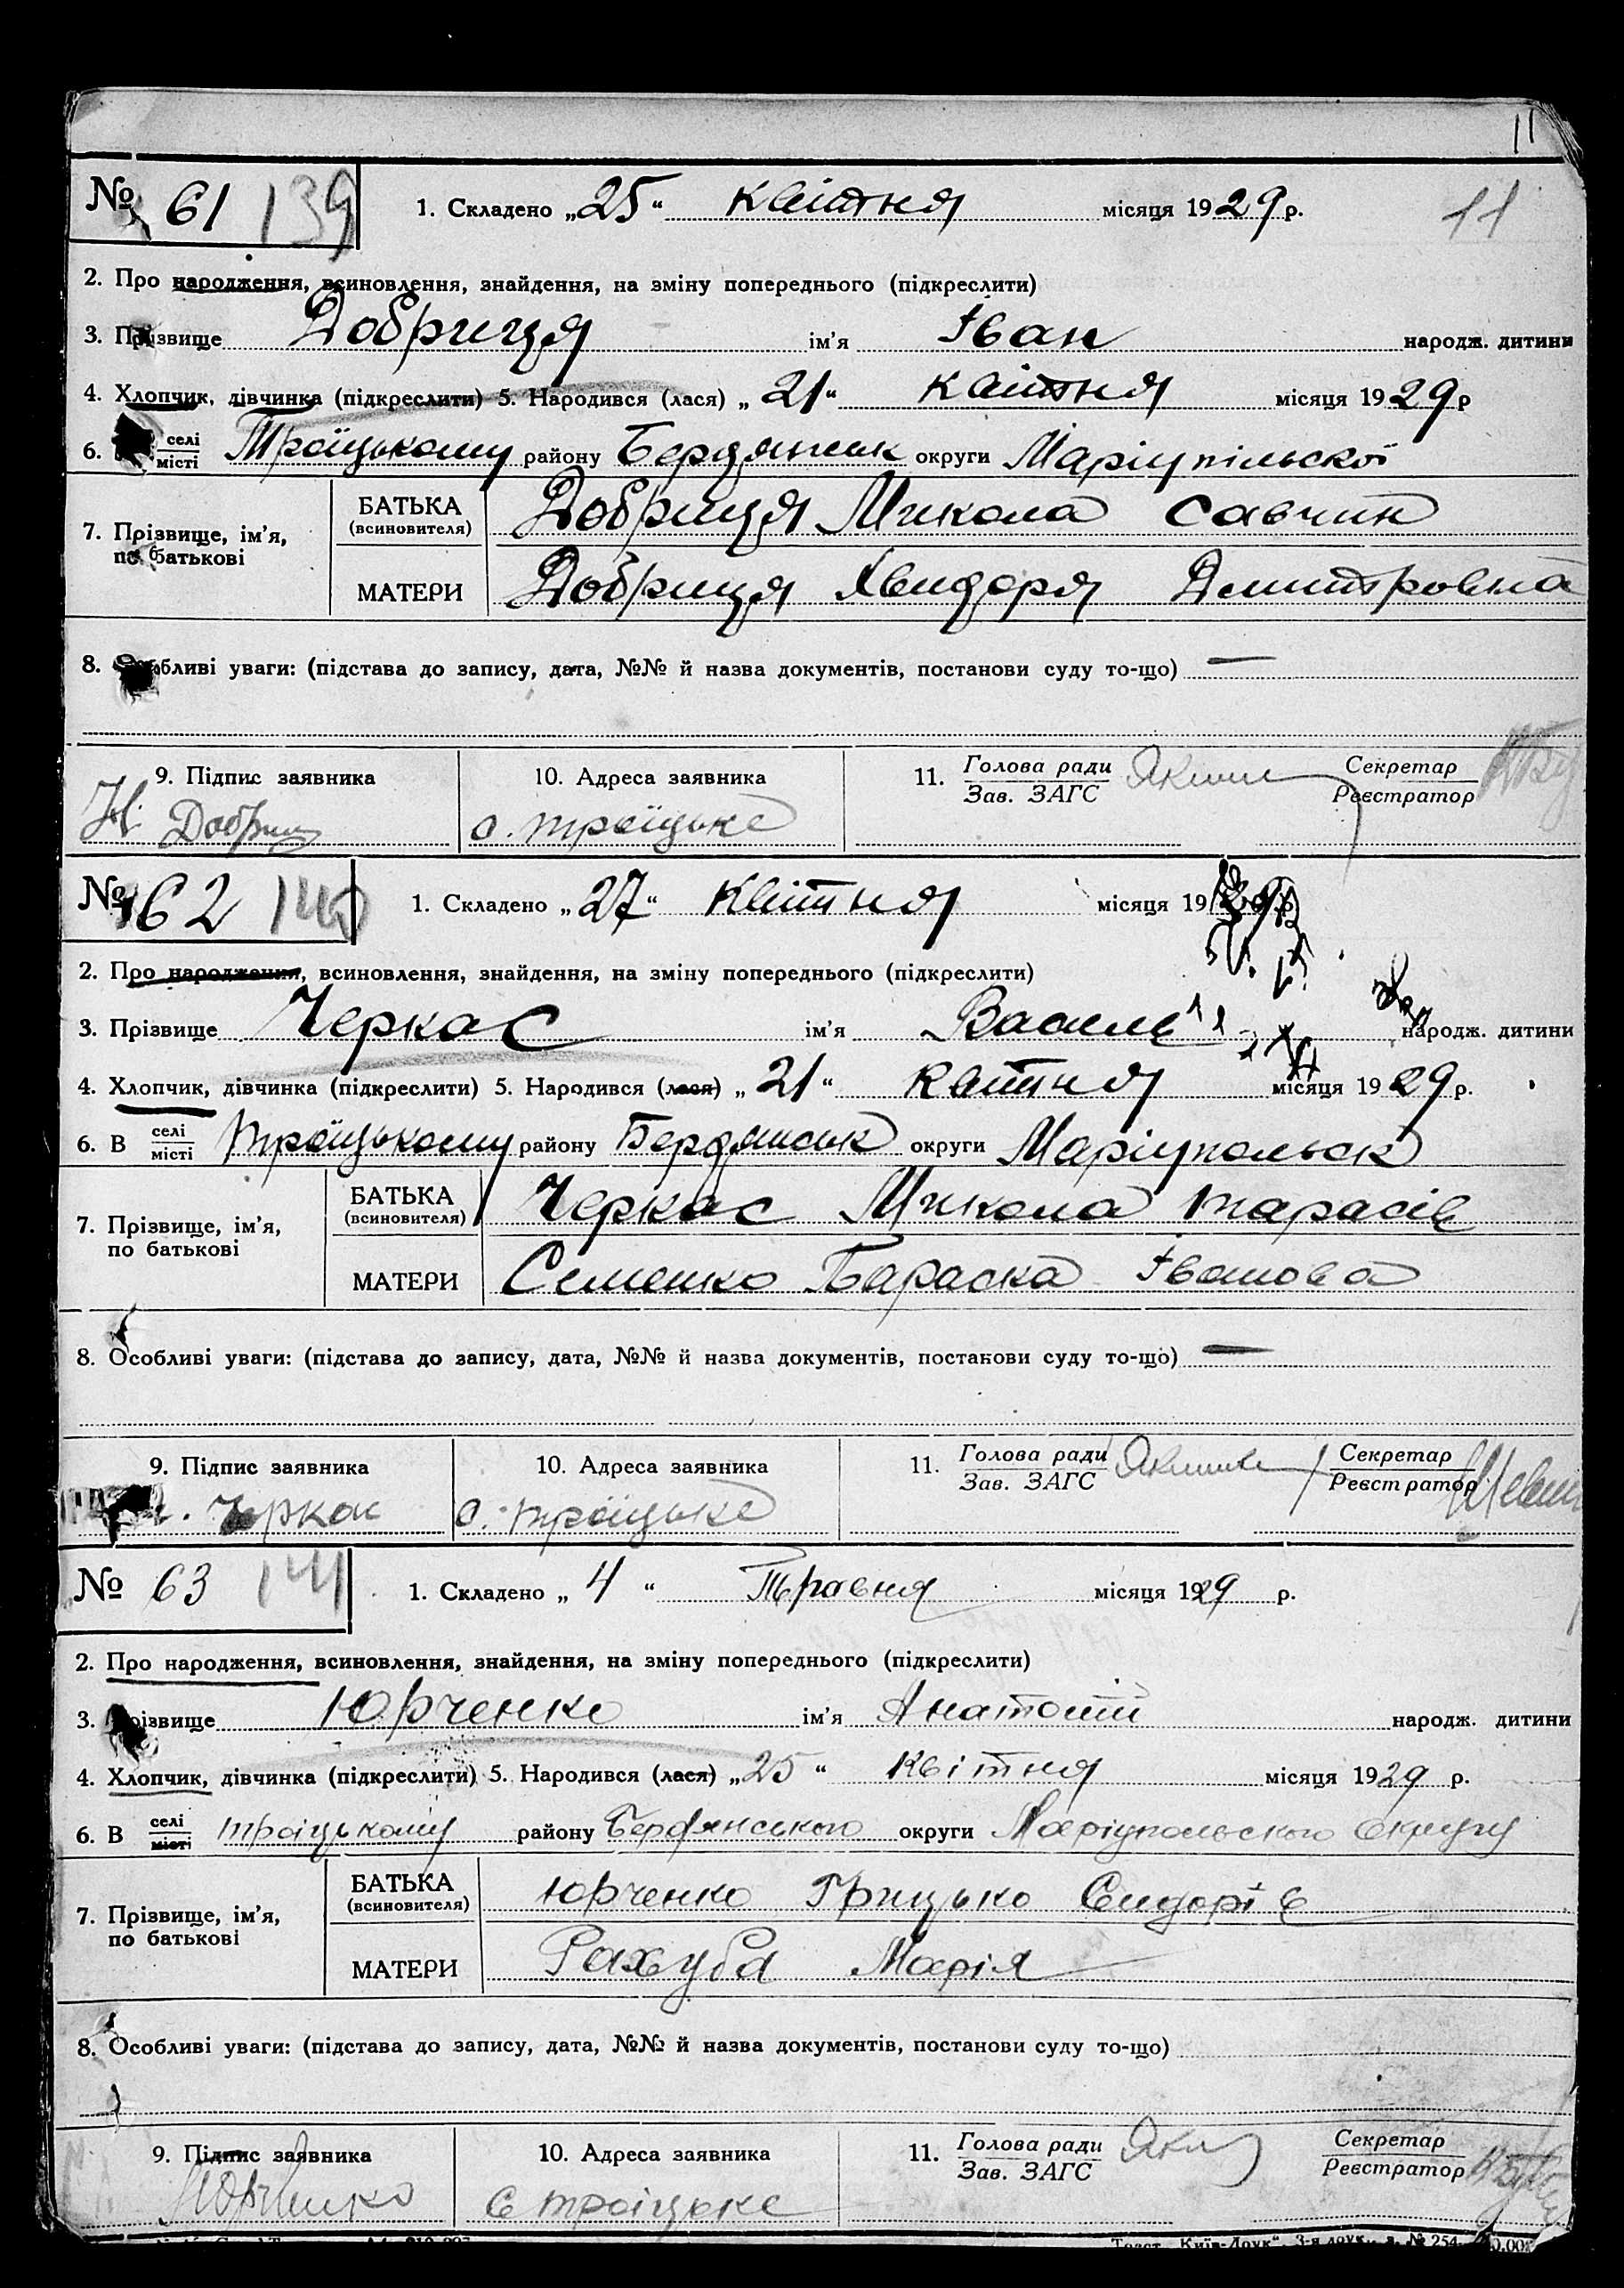 11
№ 61 139 1. Складено „25“ квітня місяця 1929 р. 11
2. Про народження, всиновлення, знайдення, на зміну попереднього (підкреслити)
3. Прізвище Добриця ім'я Іван народж. дитини
4. Хлопчик, дівчинка (підкреслити) 5. Народився (лася) „21“ квітня місяця 1929 р
6. селі
місті Троїцькому району Бердянськ округи Маріупільскої
7. Прізвище, ім'я,
по батькові
БАТЬКА
(всиновителя) Добриця Микола Савчин
МАТЕРИ Добриця Хвидоря Дмитровна
8. Особливі уваги: (підстава до запису, дата, №№ й назва документів, постанови суду то-що) —
9. Підпис заявника
Н. Добриц
10. Адреса заявника
с. Троїцьке
11. Голова ради
Зав. ЗАГС
Секретар
Реєстратор
№ 62 140 1. Складено „27“ Квітня місяця 1929
2. Про народження, всиновлення, знайдення, на зміну попереднього (підкреслити)
3. Прізвище Черкас ім'я Василь народж. дитини
4. Хлопчик, дівчинка (підкреслити) 5. Народився (лася) „21“ квітня місяця 1929 р.
6. В селі
місті Троїцькому району Бердянськ округи Маріупольск
7. Прізвище, ім'я,
по батькові
БАТЬКА
(всиновителя) Черкас Микола Тарасів
МАТЕРИ Семешко Параска Іванова
8. Особливі уваги: (підстава до запису, дата, №№ й назва документів, постанови суду то-що) —
9. Підпис заявника
Черкас
10. Адреса заявника
с. Троїцьке
11. Голова ради
Зав. ЗАГС
Секретар
Реєстратор
№ 63 141 1. Складено „4“ Травня місяця 1929 р.
2. Про народження, всиновлення, знайдення, на зміну попереднього (підкреслити)
3. Прізвище Юрченко ім'я Анатолій народж. дитини
4. Хлопчик, дівчинка (підкреслити) 5. Народився (лася) „25“ Квітня місяця 1929 р.
6. В селі
місті Троіцькому району Бердянського округи Маріупольского округу
7. Прізвище, ім'я,
по батькові
БАТЬКА
(всиновителя) Юрченко Грицько Сидорів
МАТЕРИ Рахуба Марія
8. Особливі уваги: (підстава до запису, дата, №№ й назва документів, постанови суду то-що)
9. Підпис заявника
Юрченко
10. Адреса заявника
с Троіцьке
11. Голова ради
Зав. ЗАГС
Секретар
Реєстратор
Трест „Київ-Друк“, 3-я друк., з. № 254